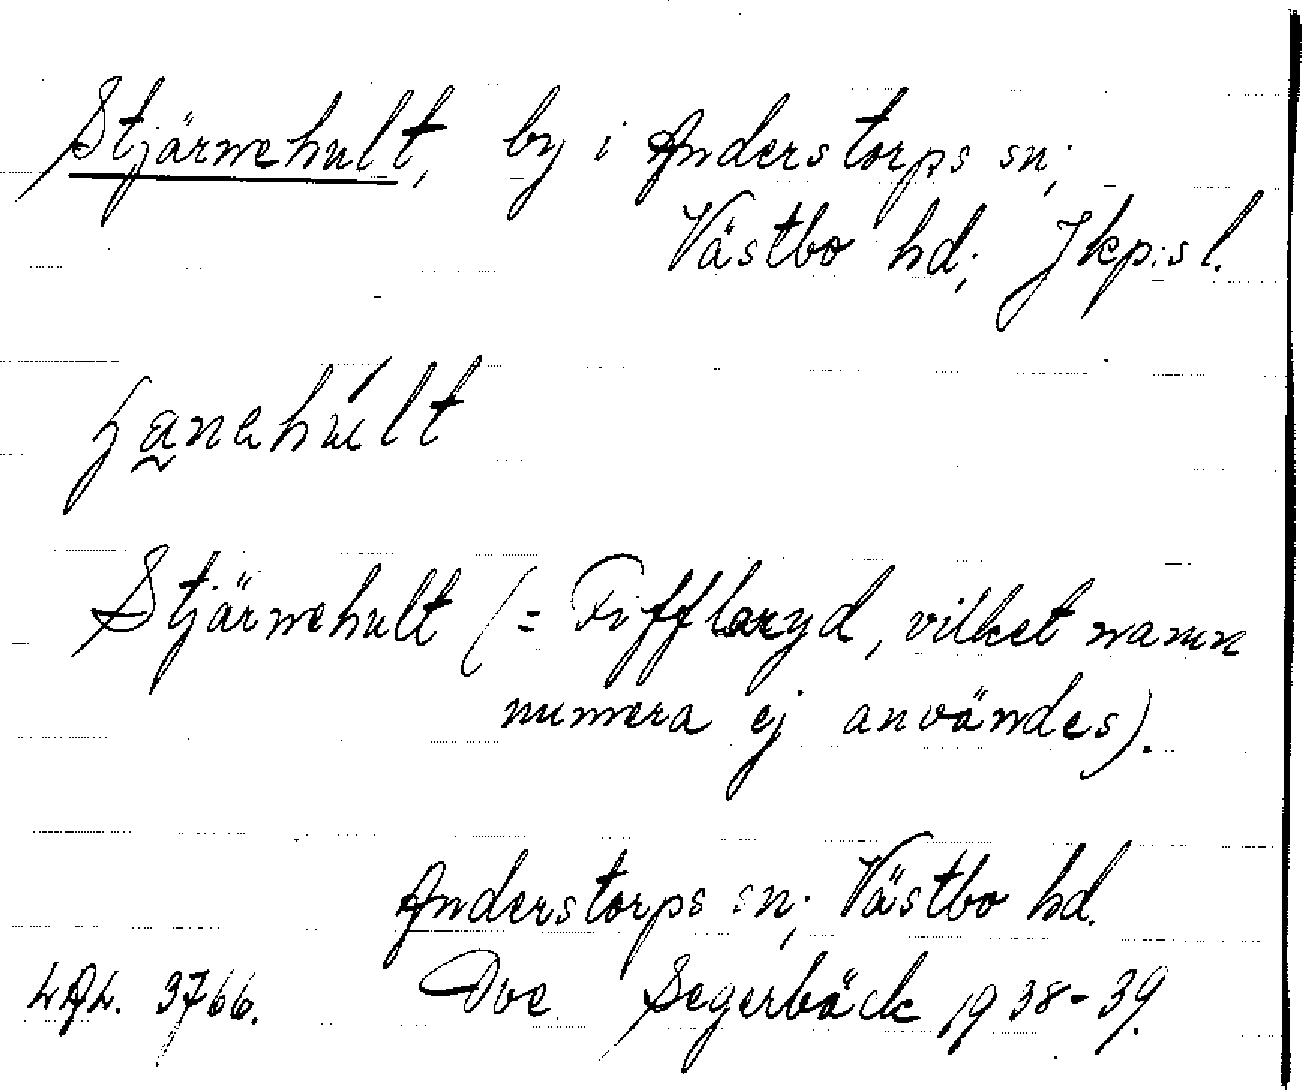 Stjärnehult, by i Anderstorps sn;
Västbo hd; Jkp:s l.
Stjärnehult (= Fifflaryd, vilket namn
numera ej användes).
Anderstorps sn; Västbo hd.
LAL. 3766. Ove Segerbäck 1938-39.